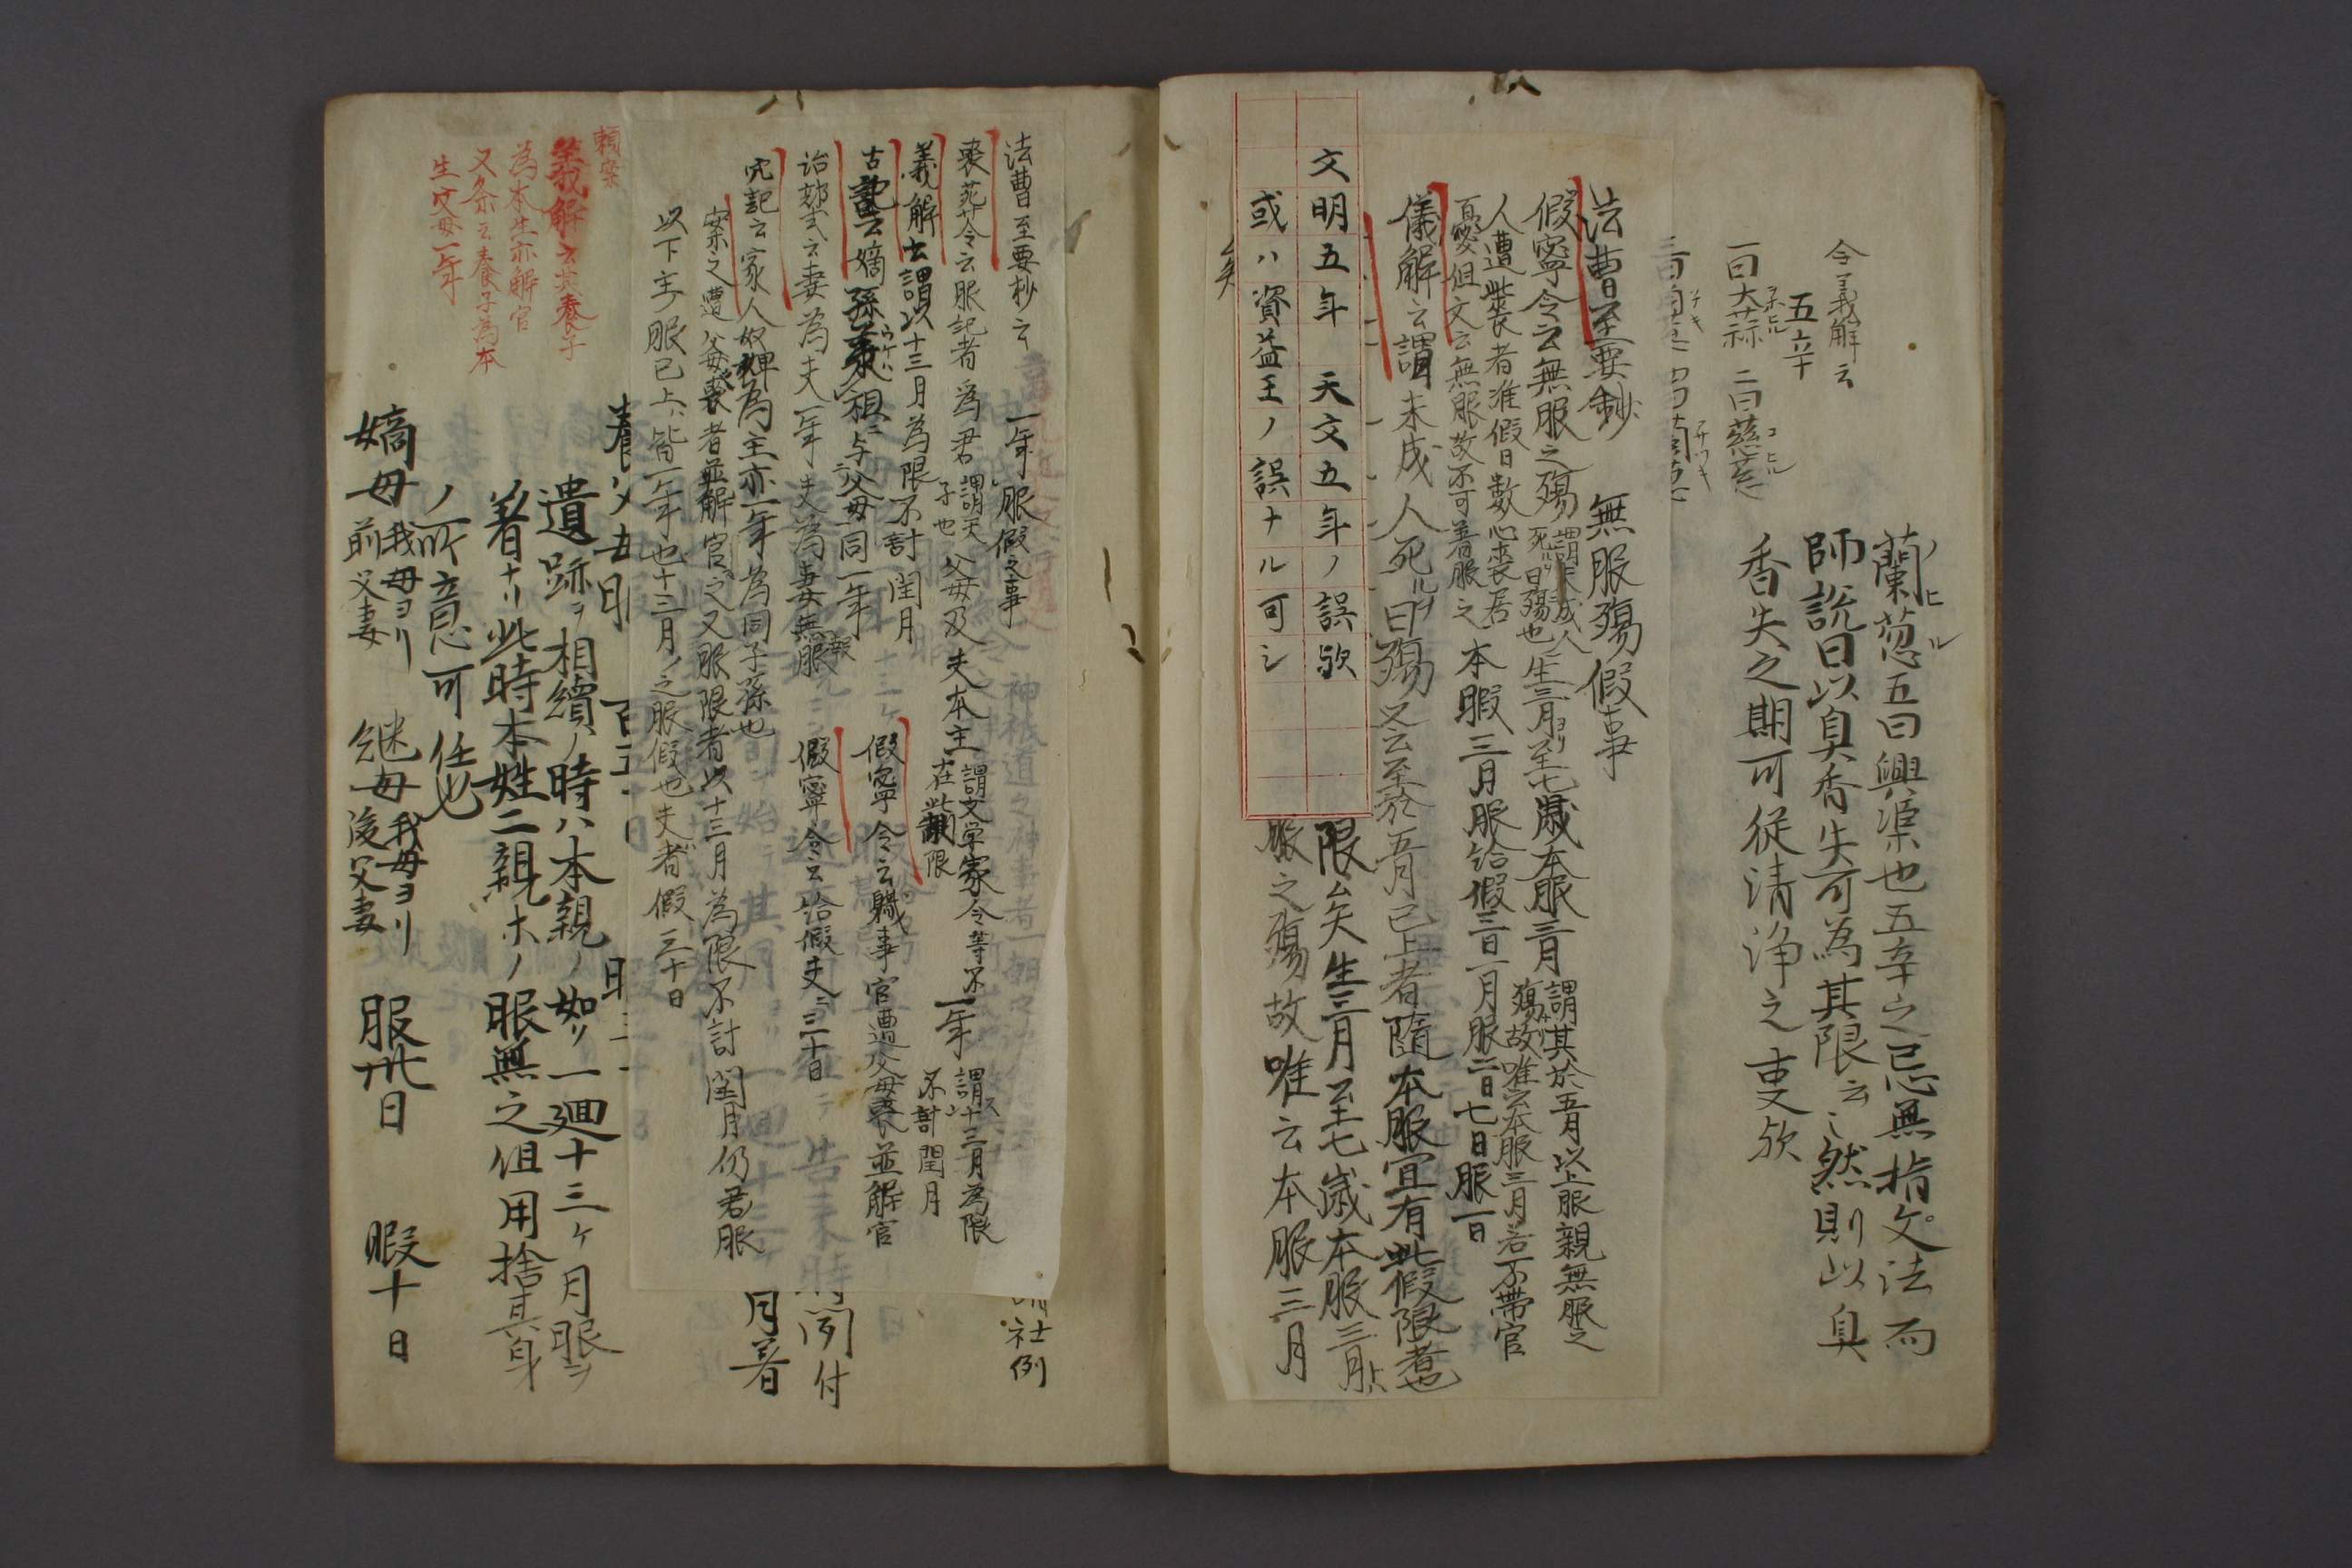 蘭葱五曰興渠也五辛之忌無指文法而
師説曰以臭香失可為其限云々然則以臭
香失之期可従清浄之吏欤
令義解云
五辛
一曰大蒜 二曰慈葱
法曹至要鈔 無服殤假事
假寧令云無服之殤謂未成人死曰殤也生三月ヨリ至七歳本服三月謂其於五月以上服親無服之殤故唯云本服三月若不帯官
人遭此喪者准假日數心喪居
憂但文云無服故不可着服之 本暇三月服給假三日一月服二日七日服一日
儀解云謂未成人死ルヲ曰殤又云至於五月已上者隨本服宜有此假限者也
限矣生三月至七歳本服三月
服之殤故唯云本服三月
文明五年 天文五年ノ誤欤
或ハ資益王ノ誤ナル可シ
矣
法曹至要抄云 一年服假之事
喪葬令云服記者為君謂天子也父母及夫本主謂文学家令等不在此限一年謂十三月為限不計閏月
義解云謂以十三月為限不計閏月
古記云嫡孫承祖ニ与父母同一年 假寧令云職事官遭父母喪並解官
治部式云妻為夫一年夫為妻無報服 假寧令云給假夫ニ三十日
穴記云家人奴婢為主亦一年為同子孫也
案之遭父母喪者並解官之又服限者以十三月為限不計閏月仍君服
以下主服已上皆一年也十三月ノ之服假也夫者假三十日
諸社例
閇付
月着
頼案
義解云其養子
為本生亦解官
又条云養子為本
生父母一年
養父
遺跡ヲ相續ノ時ハ本親ノ如ク一廻十三ケ月服ヲ
着ナリ此時本姓二親ホノ服無之但用捨其身
ノ所意可任也
嫡母我母ヨリ前父妻 継母我母ヨリ後父妻 服卅日 暇十日